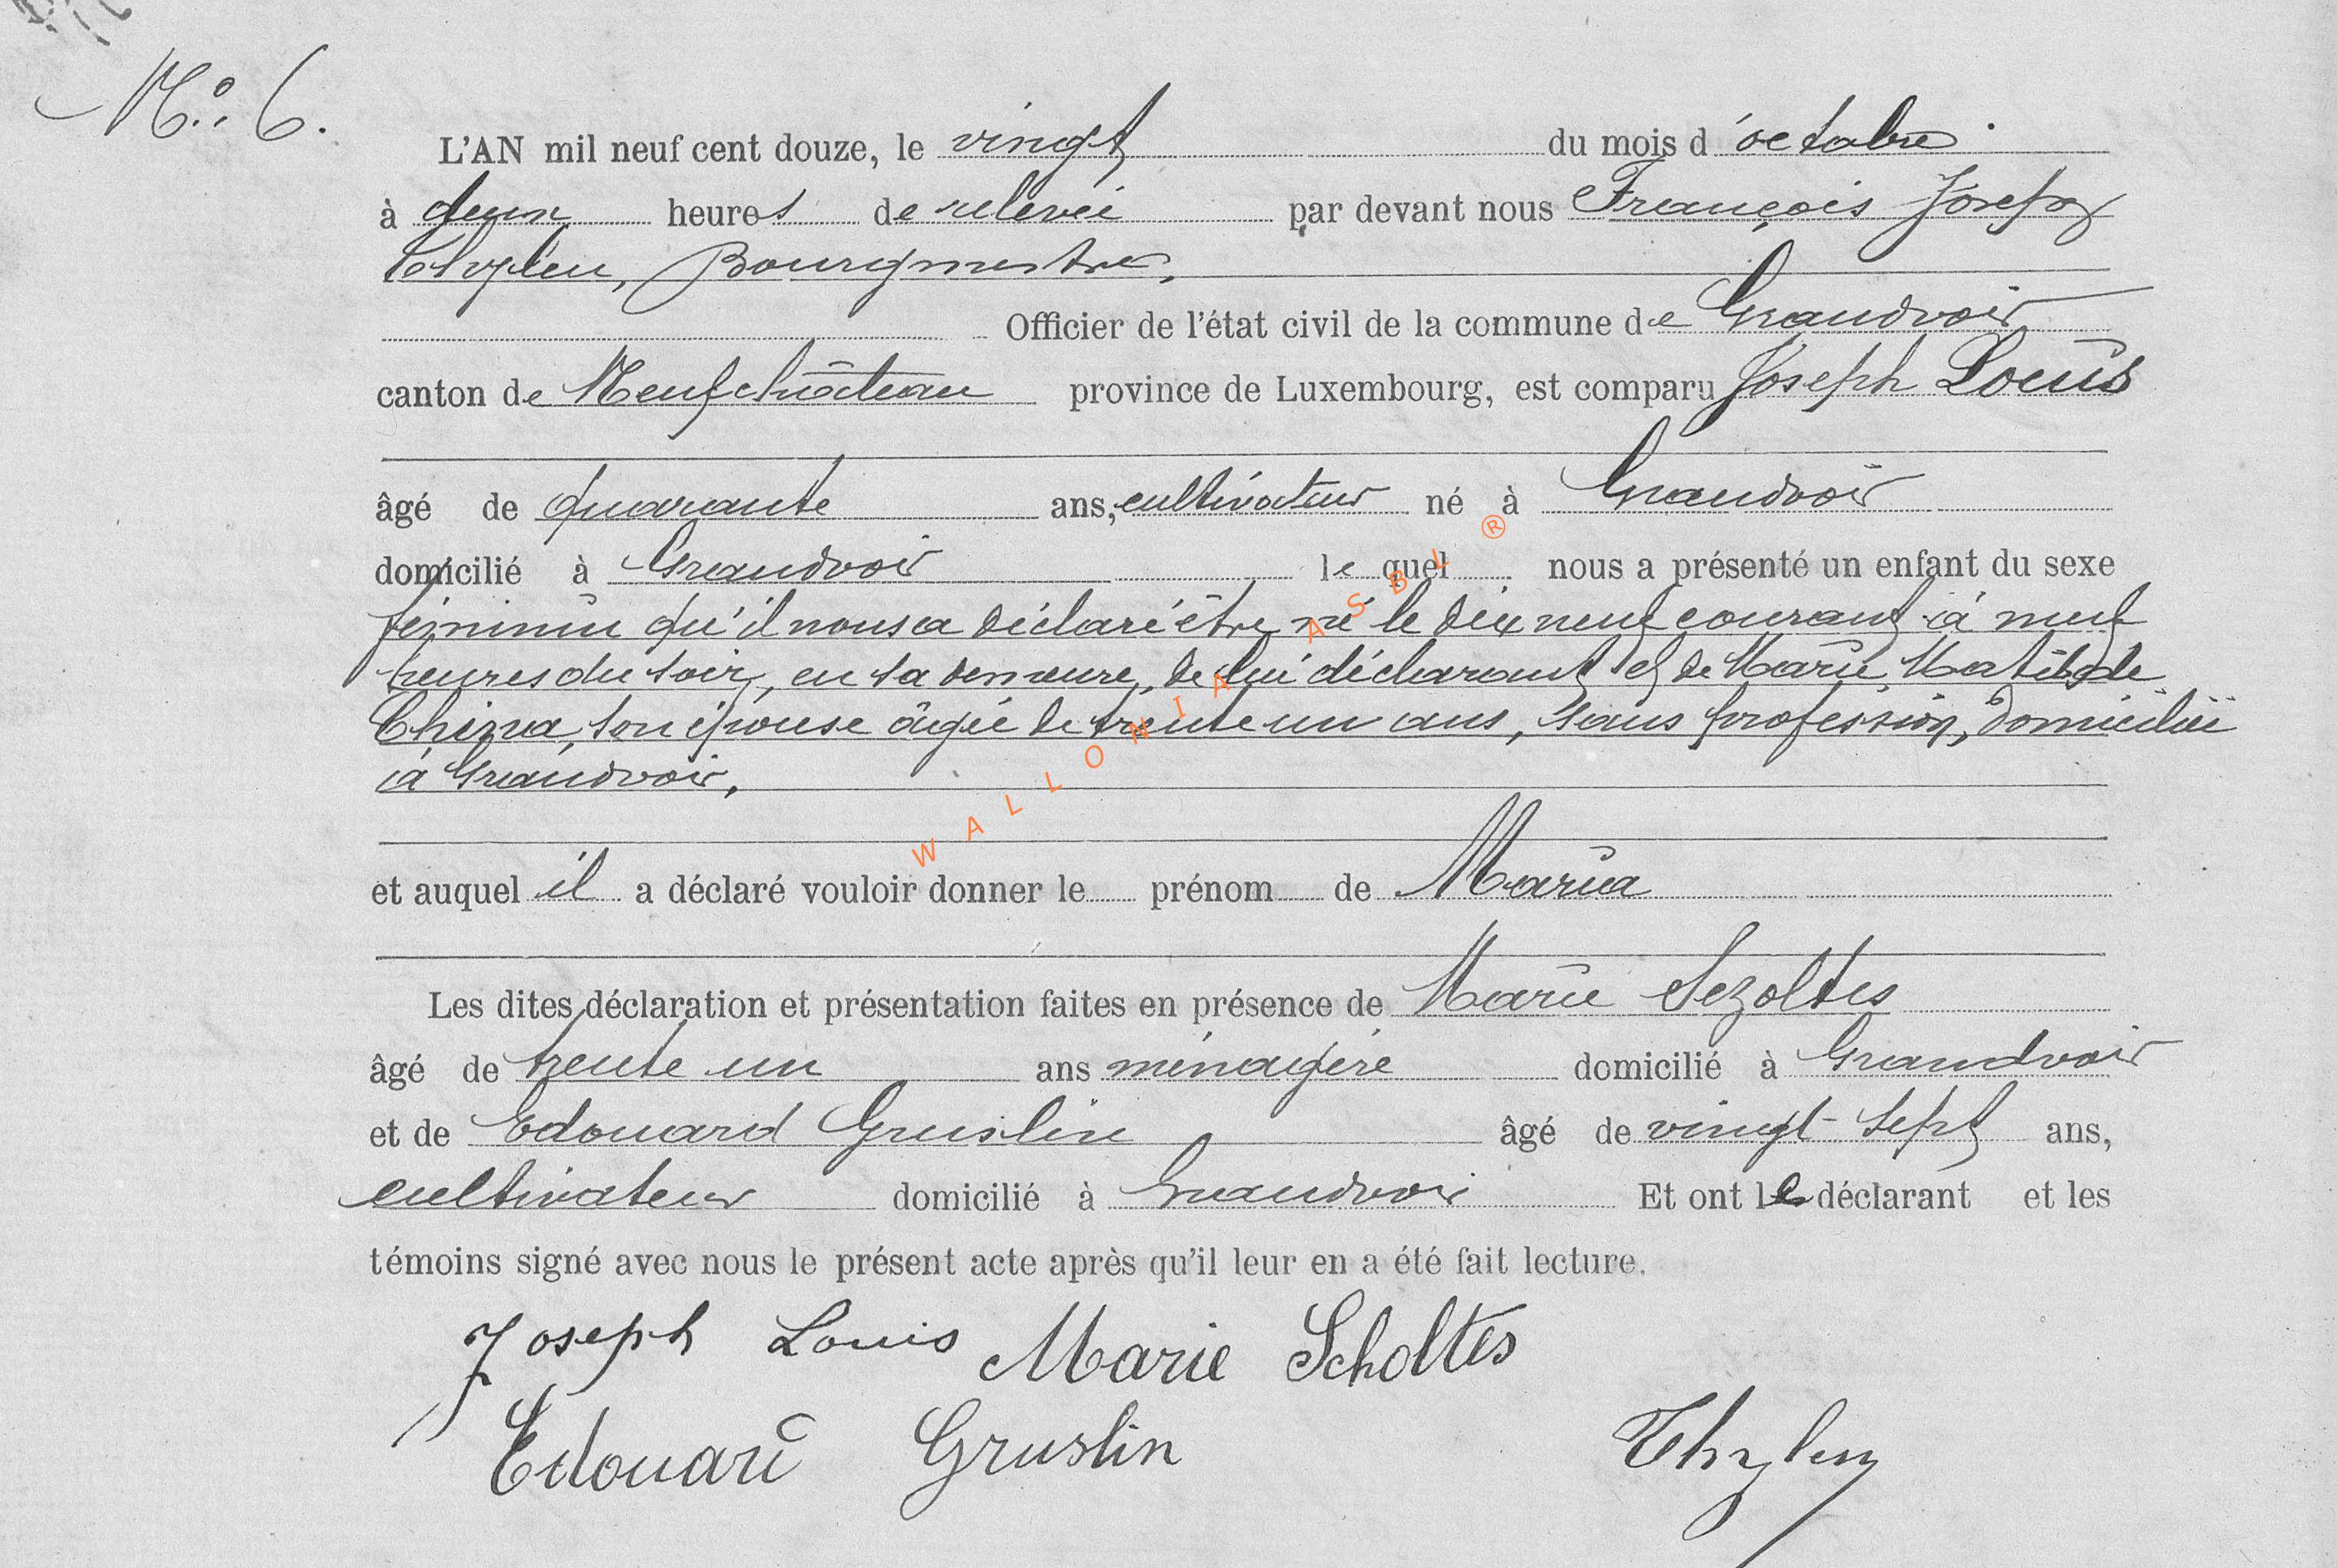 N.º 6.
L'AN mil neuf cent douze, le vingt du mois d'octobre
à deux heures de relevée par devant nous François Joseph
Thylen, Bourgmestre,
Officier de l'état civil de la commune de Grandvoir
canton de Neufchâteau province de Luxembourg, est comparu Joseph Louis
âgé de quarante ans, cultivateur né à Grandvoir
domicilié à Grandvoir le quel nous a présenté un enfant du sexe
féminin qu'il nous a déclaré être né le dix neuf courant à neuf
heures du soir, en sa demeure, de lui déclarant et de Marie Matilde
son épouse âgée de trente un ans, sans profession, domiciliée
à Grandvoir,
et auquel il a déclaré vouloir donner le prénom de Maria
Les dites déclaration et présentation faites en présence de Marie Sezoltes
âgé de trente un ans ménagère domicilié à Grandvoir
et de Edouard Gruslin âgé de vingt-sept ans,
cultivateur domicilié à Grandvoir Et ont le déclarant et les
témoins signé avec nous le présent acte après qu'il leur en a été fait lecture.
Joseph Louis Marie Scholtes
Edouard Gruslin Thylen
WALLONIA ASBL ®